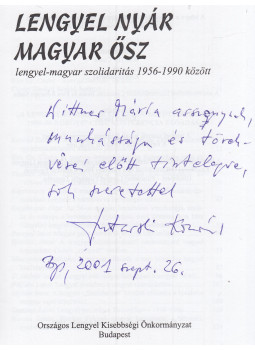 LENGYEL NYÁR
MAGYAR ŐSZ
lengyel-magyar szolidaritás 1956-1990 között
Wittner Mária asszonynak,
munkássága és törek-
vései előtt tisztelegve,
sok szeretettel
Bp, 2001 szept. 26.
Országos Lengyel Kisebbségi Önkormányzat
Budapest